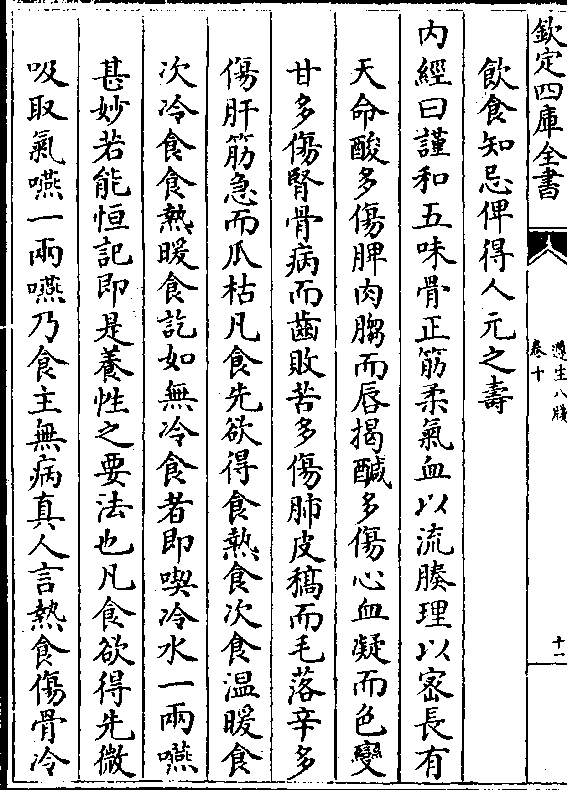 欽定四庫全書
遵生八牋
卷十
十一
飲食知忌俾得人元之壽
内經曰謹和五味骨正筋柔氣血以流腠理以密長有
天命酸多傷脾肉䐢而唇揭鹹多傷心血凝而色變
甘多傷腎骨病而齒敗苦多傷肺皮稿而毛落辛多
傷肝筋急而爪枯凡食先欲得食熱食次食温暖食
次冷食食熱暖食訖如無冷食者即喫冷水一兩嚥
甚妙若能恒記即是養性之要法也凡食欲得先微
吸取氣嚥一兩嚥乃食主無病真人言熱食傷骨冷